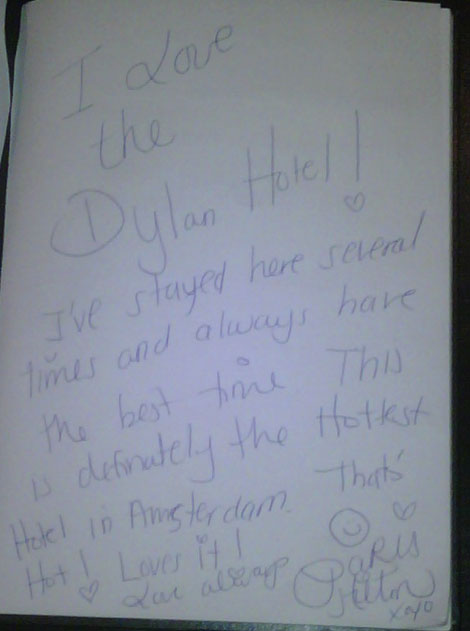 I Love
the
Dylan Hotel!
I've stayed here several
times and always have
the best time This
is definately the Hottest
Hotel in Amsterdam. That's
Hot! Loves it!
Love always Paris
Hilton
xoxo